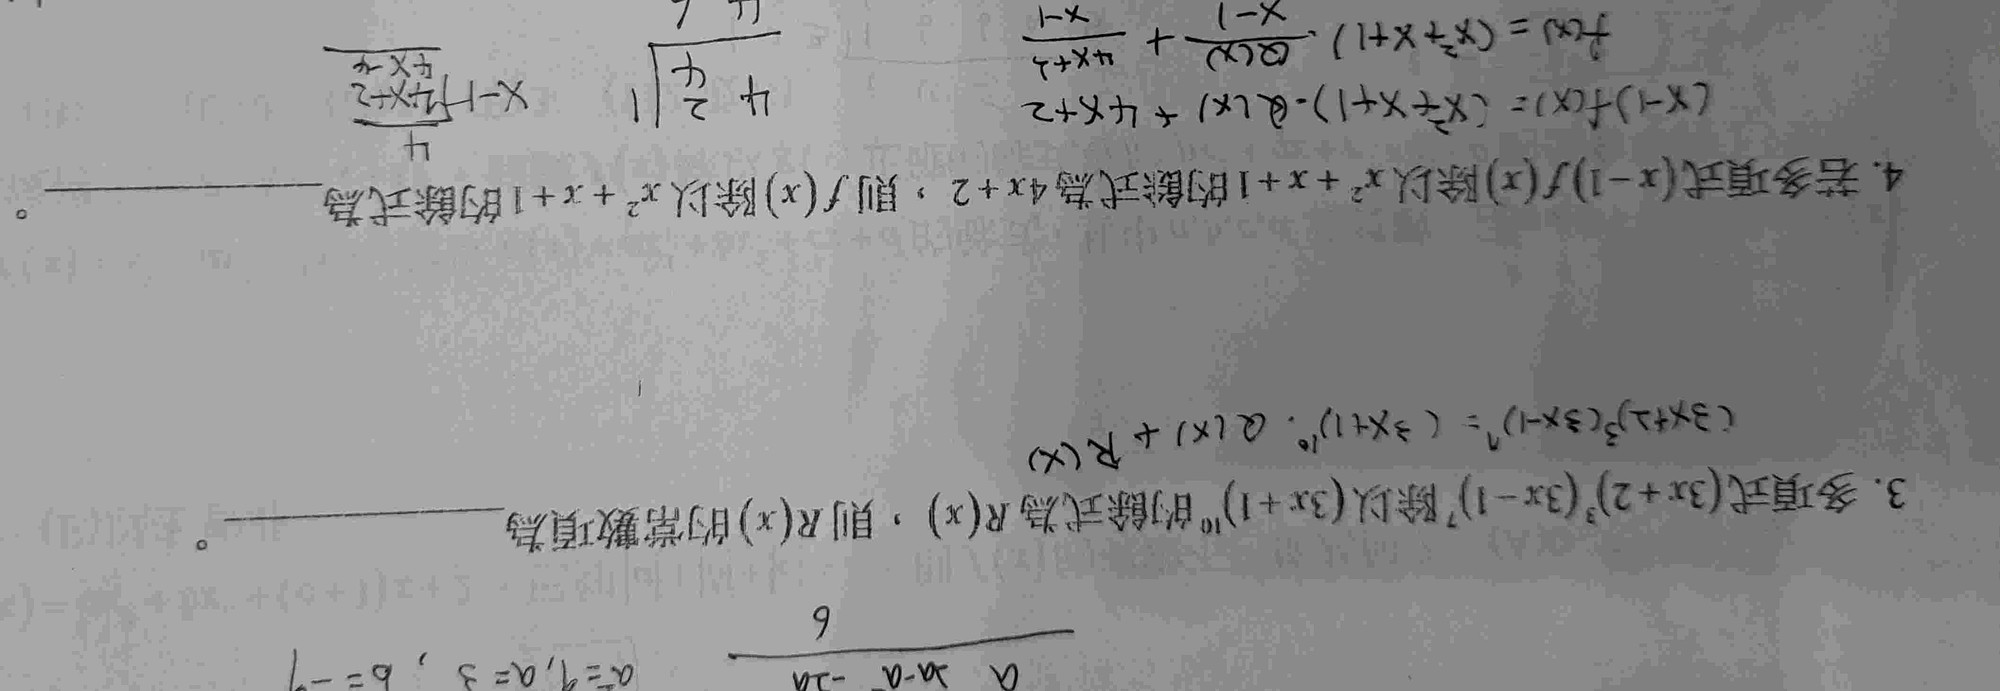 a 2a-a² -2a
6
a²=9, a=3, b=-9
3. 多項式(3x+2)³(3x-1)⁷除以(3x+1)¹⁰的餘式為R(x),則R(x)的常數項為________。
(3x+2)³(3x-1)⁷=(3x+1)¹⁰·Q(x)+R(x)
4. 若多項式(x-1)f(x)除以x²+x+1的餘式為4x+2,則f(x)除以x²+x+1的餘式為________。
(x-1)f(x)=(x²+x+1)·Q(x)+4x+2
f(x)=(x²+x+1)·Q(x)/x-1+4x+2/x-1
4 2 | 1
4
4 6
4
x-1 4x+2
4x-4